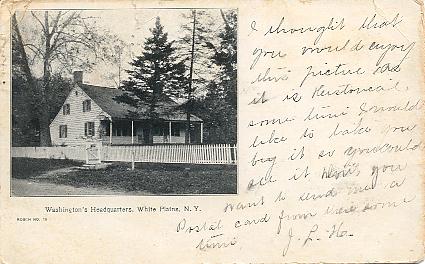 I thought that
you would enjoy
this picture as
it is Historical,
some time I would
like to take you
by it so you could
see it. Don't you
want to send me a
Postal card from here some
time.
J. L. H.
Washington's Headquarters, White Plains, N. Y.
ROBEN NO. 18